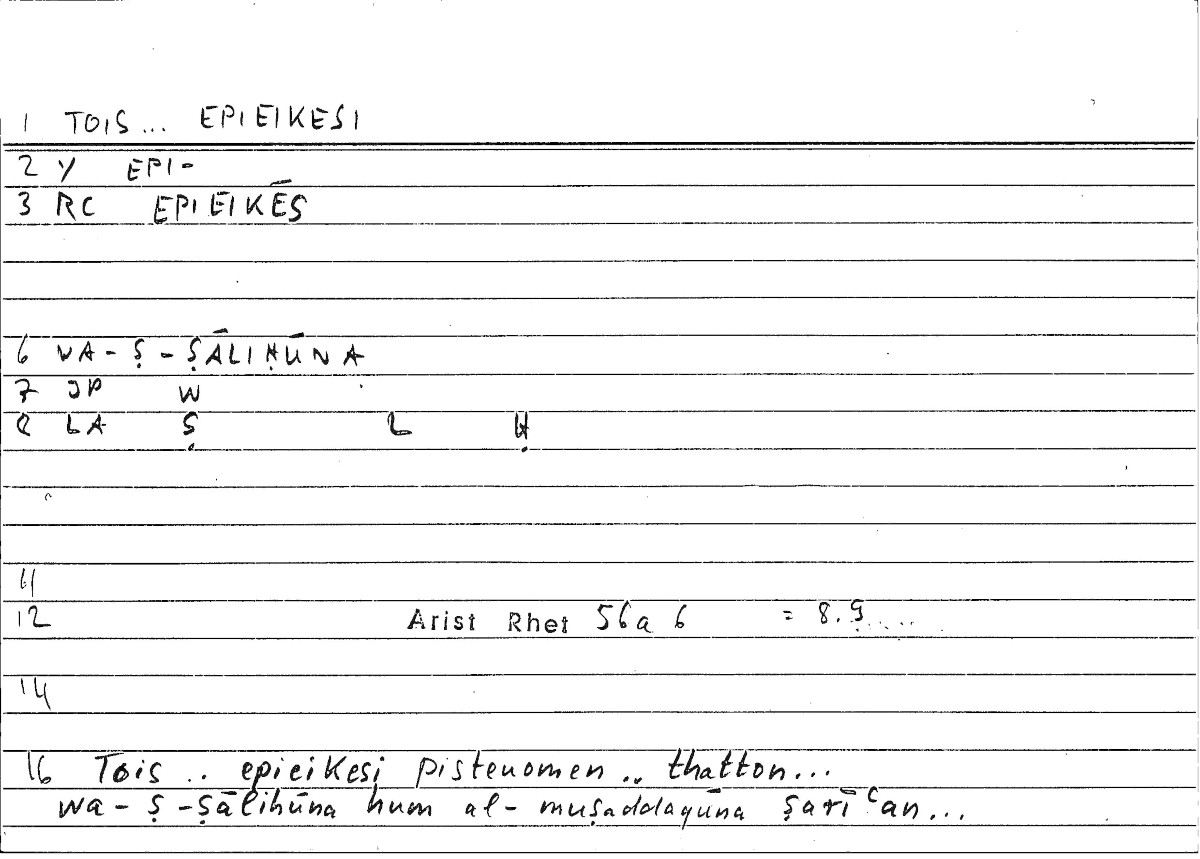 1 TOIS... EPIEIKESI
2 Y EPI-
3 RC EPIEIKĒS
6 WA-Ṣ-ṢĀLIḤŪNA
7 JP W
8 LA Ṣ L Ḥ
11
12 Arist Rhet 56a 6 = 8.9.....
14
16 Tois .. epieikesi pisteuomen .. thatton...
wa-ṣ-ṣālihūna hum al-muṣaddaqūna ṣarīʿan...